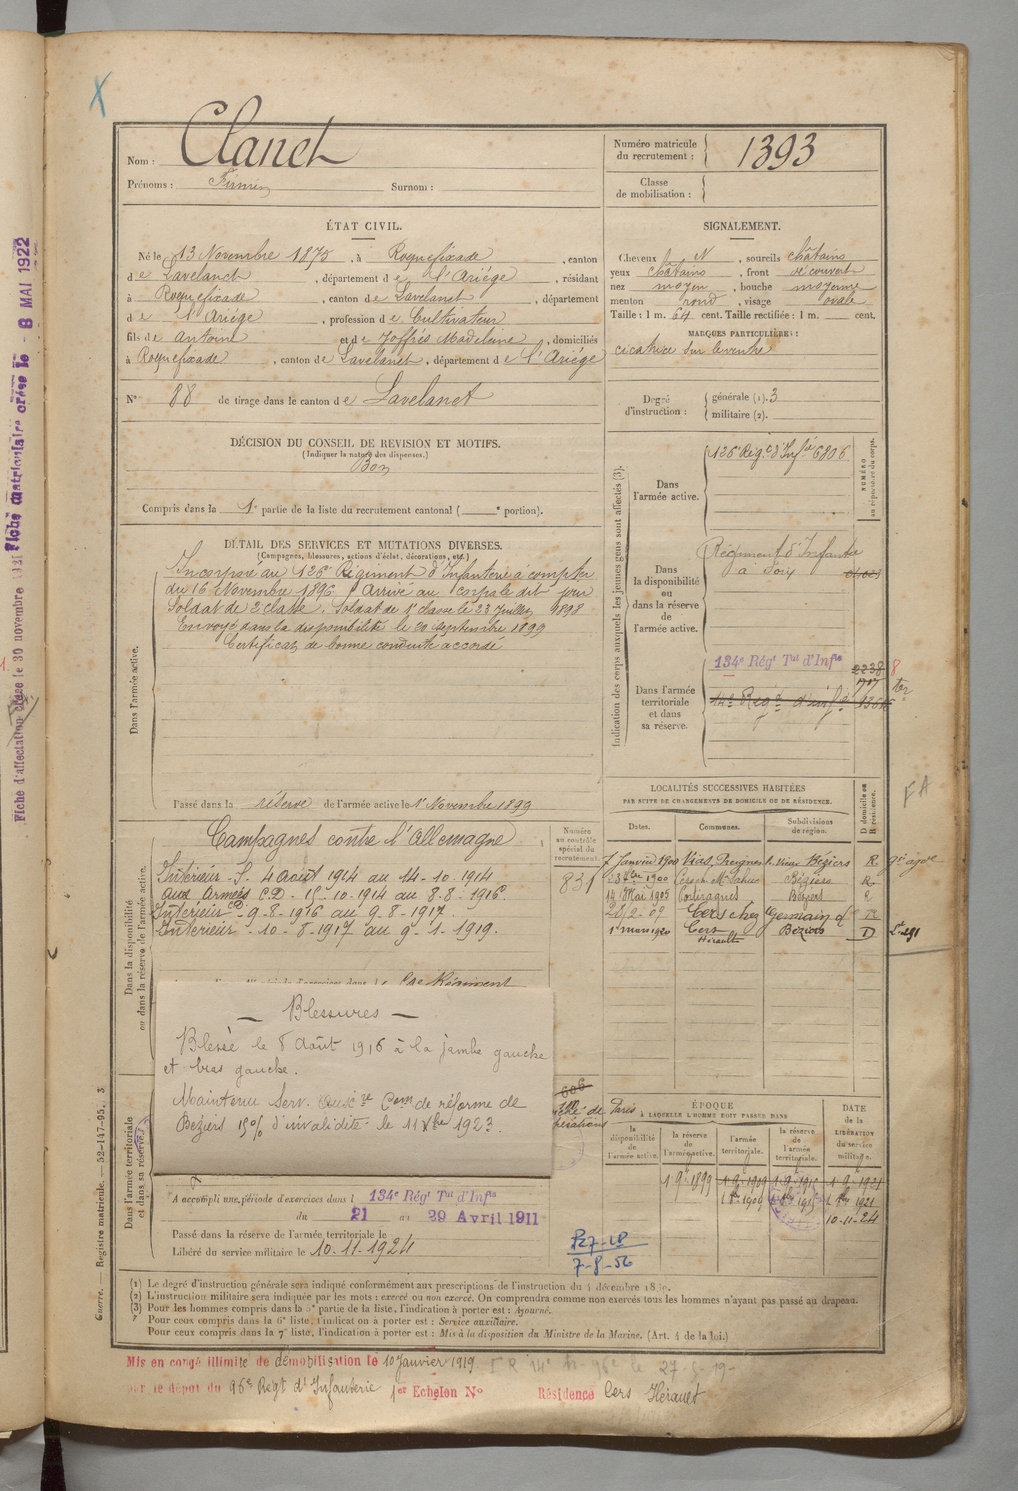 Nom : Clanet
Prénoms : Firmin Surnom :
Numéro matricule du recrutement : 1393
Classe de mobilisation :
ÉTAT CIVIL.
Né le 13 Novembre 1875, à Roquefixade, canton
de Lavelanet, département de l'Ariége, résidant
à Roquefixade, canton de Lavelanet, département
de l'Ariége, profession de Cultivateur
fils de Antoine et de Joffrés Madeleine, domiciliés
à Roquefixade, canton de Lavelanet, département de l'Ariége
N° 88 de tirage dans le canton de Lavelanet
SIGNALEMENT.
Cheveux N, sourcils châtains
yeux châtains, front découvert
nez moyen, bouche moyenne
menton rond, visage ovale
Taille : 1 m. 64 cent. Taille rectifiée : 1 m. cent.
MARQUES PARTICULIÈRES :
cicatrice sur le ventre
Degré d'instruction : générale (1). 3
militaire (2).
DÉCISION DU CONSEIL DE REVISION ET MOTIFS.
(Indiquer la nature des dispenses.)
Bon
Compris dans la 1e partie de la liste du recrutement cantonal ( e portion).
DÉTAIL DES SERVICES ET MUTATIONS DIVERSES.
(Campagnes, blessures, actions d'éclat, décorations, etc.)
Dans l'armée active.
Incorporé au 126e Régiment d'Infanterie à compter
du 16 Novembre 1896. Arrivé au corps le dit jour
Soldat de 2e classe. Soldat de 1e classe le 23 Juillet 1898
Envoyé dans la disponibilité le 20 Septembre 1899
Certificat de bonne conduite accordé
Passé dans la réserve de l'armée active le 1er Novembre 1899
Indication des corps auxquels les jeunes gens sont affectés (3).
NUMÉRO au répertoire du corps.
Dans l'armée active.
126e Rég. d'Infie 6806
Dans la disponibilité ou dans la réserve de l'armée active.
Régiment d'Infanterie
à Foix
Dans l'armée territoriale et dans sa réserve.
134e Régt Tal d'Infie
2238 8
1717 ter
Dans la disponibilité ou dans la réserve de l'armée active.
Campagnes contre l'Allemagne
Numéro au contrôle spécial du recrutement.
831
Intérieur S. 4 août 1914 au 14-10-1914
aux Armées C.D. 15-10-1914 au 8-8-1916.
Intérieur CD 9-8-1916 au 9-8-1917.
Intérieur 10-8-1917 au 9-1-1919.
LOCALITÉS SUCCESSIVES HABITÉES
PAR SUITE DE CHANGEMENTS DE DOMICILE OU DE RÉSIDENCE.
Dates. Communes. Subdivisions de région. D domicile ou R résidence.
7 Janvier 1900 Vias Béziers R
1900 Cers Béziers R
14 Mai 1905 Portiragnes Béziers R
Cers chez Germain
1er mars 1920 Cers Hérault Béziers D
FA
— Blessures —
Blessé le 8 août 1916 à la jambe gauche
et bras gauche.
Maintenu Serv. aux. Com de réforme de
Béziers 15% d'invalidité le 11 Xbre 1923.
Dans l'armée territoriale et dans sa réserve.
A accompli une période d'exercices dans l 134e Régt Tal d'Infie
du 21 au 29 Avril 1911
Passé dans la réserve de l'armée territoriale le
Libéré du service militaire le 10.11.1924
ÉPOQUE
À LAQUELLE L'HOMME DOIT PASSER DANS
la disponibilité de l'armée active. la réserve de l'armée active. l'armée territoriale. la réserve de l'armée territoriale. DATE de la LIBÉRATION du service militaire.
1.9.1899 1.9.1909 1.9.1915 1.9.1921
10-11-24
7-8-56
(1) Le degré d'instruction générale sera indiqué conformément aux prescriptions de l'instruction du 4 décembre 1889.
(2) L'instruction militaire sera indiquée par les mots : exercé ou non exercé. On comprendra comme non exercés tous les hommes n'ayant pas passé au drapeau.
(3) Pour les hommes compris dans la 5e partie de la liste, l'indication à porter est : Ajourné.
Pour ceux compris dans la 6e liste, l'indication à porter est : Service auxiliaire.
Pour ceux compris dans la 7e liste, l'indication à porter est : Mis à la disposition du Ministre de la Marine. (Art. 4 de la loi.)
Mis en congé illimité de démobilisation le 10 Janvier 1919
par le dépôt du 96e Regt d'Infanterie 1er Echelon N° Résidence Cers Hérault
Guerre. — Registre matricule. — 52-147-95. 3
8 MAI 1922